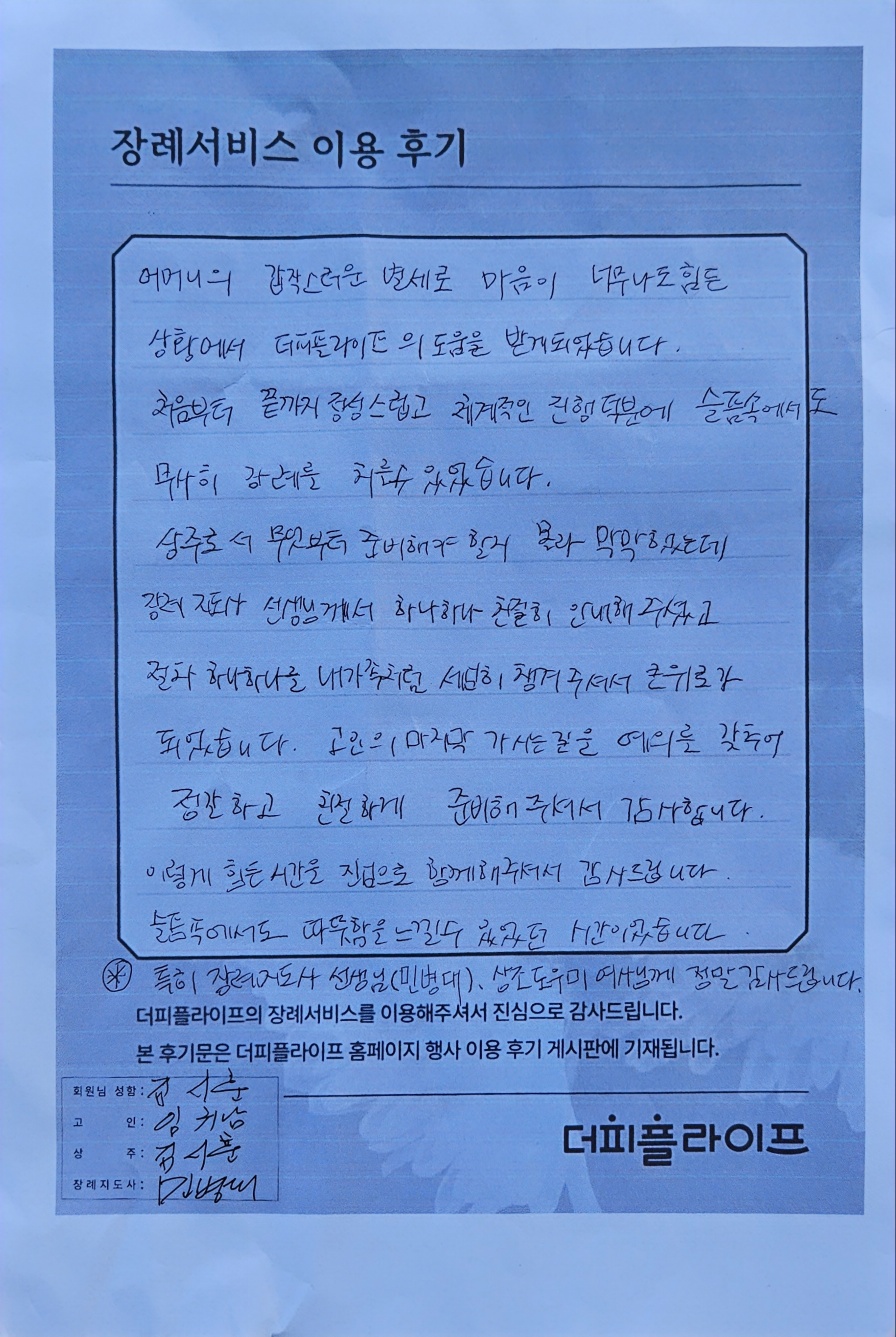 장례서비스 이용 후기
어머니의 갑작스러운 별세로 마음이 너무나도 힘든
상황에서 더피플라이프의 도움을 받게되었습니다.
처음부터 끝까지 정성스럽고 체계적인 진행덕분에 슬픔속에서도
무사히 장례를 치를수 있었습니다.
상주로서 무엇부터 준비해야 할지 몰라 막막했는데
장례지도사 선생님께서 하나하나 친절히 안내해 주셨고
절차 하나하나를 내가족처럼 세심히 챙겨주셔서 큰위로가
되었습니다. 고인의 마지막 가시는길을 예의를 갖추어
정갈하고 친절하게 준비해주셔서 감사합니다.
이렇게 힘든시간을 진심으로 함께해주셔서 감사드립니다.
슬픔속에서도 따뜻함을 느낄수 있었던 시간이었습니다.
※ 특히 장례지도사 선생님(민병대), 상조도우미 여사님께 정말감사드립니다.
더피플라이프의 장례서비스를 이용해주셔서 진심으로 감사드립니다.
본 후기문은 더피플라이프 홈페이지 행사 이용 후기 게시판에 기재됩니다.
회원님 성함:
고 인: 임
상 주:
장례지도사: 민병대
더피플라이프